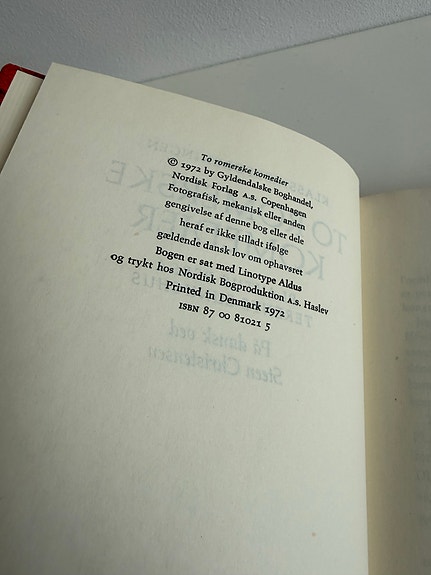 To romerske komedier
© 1972 by Gyldendalske Boghandel,
Nordisk Forlag A.S. Copenhagen
Fotografisk, mekanisk eller anden
gengivelse af denne bog eller dele
heraf er ikke tilladt ifølge
gældende dansk lov om ophavsret
Bogen er sat med Linotype Aldus
og trykt hos Nordisk Bogproduktion A.S. Haslev
Printed in Denmark 1972
ISBN 87 00 81021 5
På dansk ved
Steen Christensen